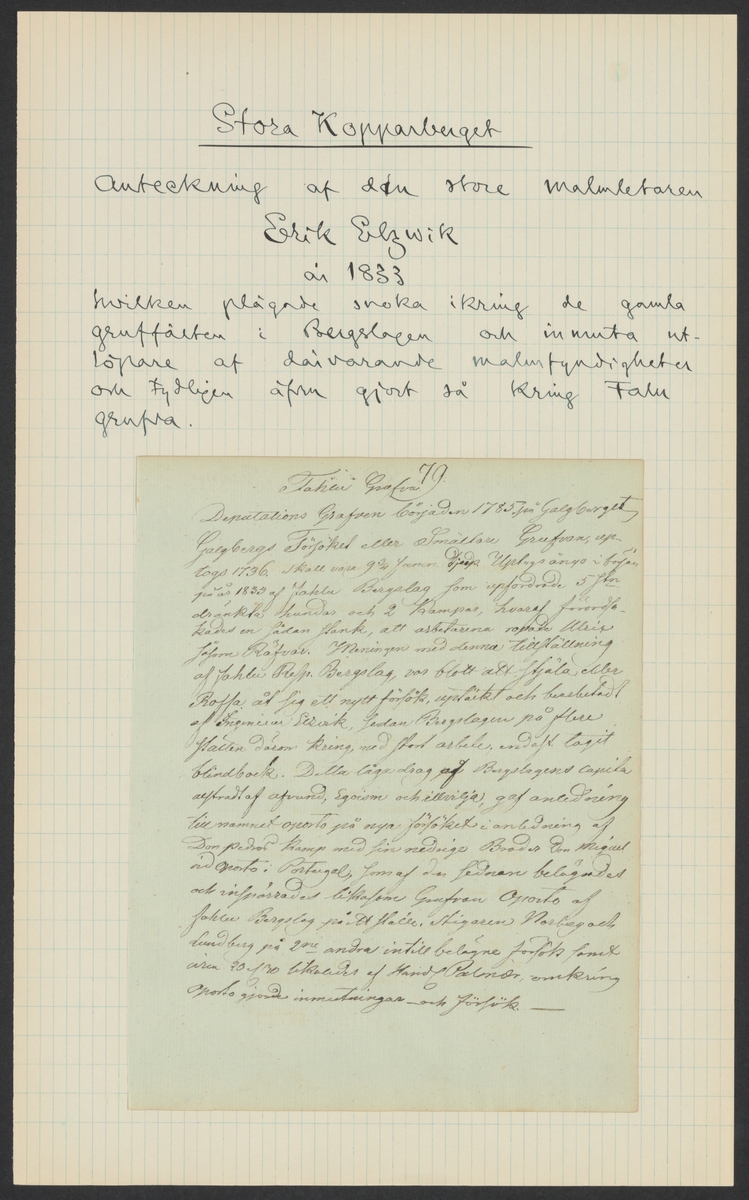 Stora Kopparberget
Anteckning af den store malmletaren
Erik Elzwik
år 1833
hvilken plägade snoka ikring de gamla
gruffälten i Bergslagen och inmuta ut-
löpare af dåvarande malmfyndigheter
och tydligen äfven gjort så kring Falu
grufva.
79.
Fahlu Grufva
Deputations Grufvan började 1785 på Galgberget
Galgbergs Försöket eller Smältare Grufvan, up-
togs 1736. skall vara 9 3/4 famn djup. Uptogs ånyo i början
på år 1833 af Fahlu Bergslag som upfordrade 5 st.
dränkta hundar och 2 Kampar, hvaraf förorsa-
kades en sådan stank, att arbetarena ropade Ulrik
såsom Räfvar. Meningen med denna tillställning
af Fahlu Resp. Bergslag, var blott att stjäla eller
Roffa åt sig ett nytt försök, uptäckt och bearbetadt
af Ingenieur Elzvik, sedan Bergslagen på flere
ställen därom kring, med stort arbete, endast tagit
blindbock. Detta låga drag af Bergslagens
alstradt af afvund, Egoism och illvilja, gaf anledning
till namnet Oporto på nya försöket i anledning af
Don Pedros kamp med sin nedrige Broder Don Miguel
vid Oporto i Portugal, som af den sednare belägrades
och inspärrades likasom Grufvan Oporto af
Fahlu Bergslag på ett ställe, Stigaren Norberg och
Lundberg på 2ne andra intill belägne försök samt
likaledes af Handl. omkring
Oporto gjorde inmutningar och försök. —